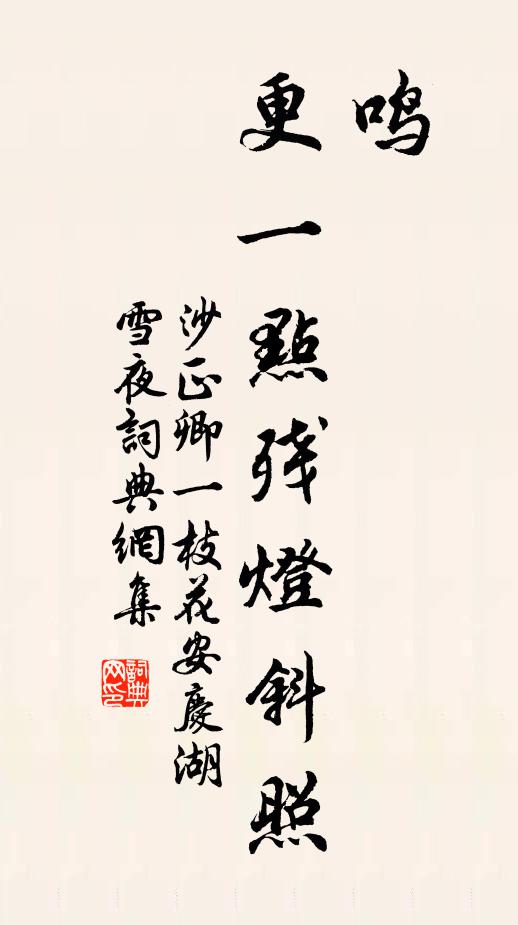 鸣
更一點残燈斜照
沙正卿一枝花安慶湖
雪夜詞典網集
詞典网印